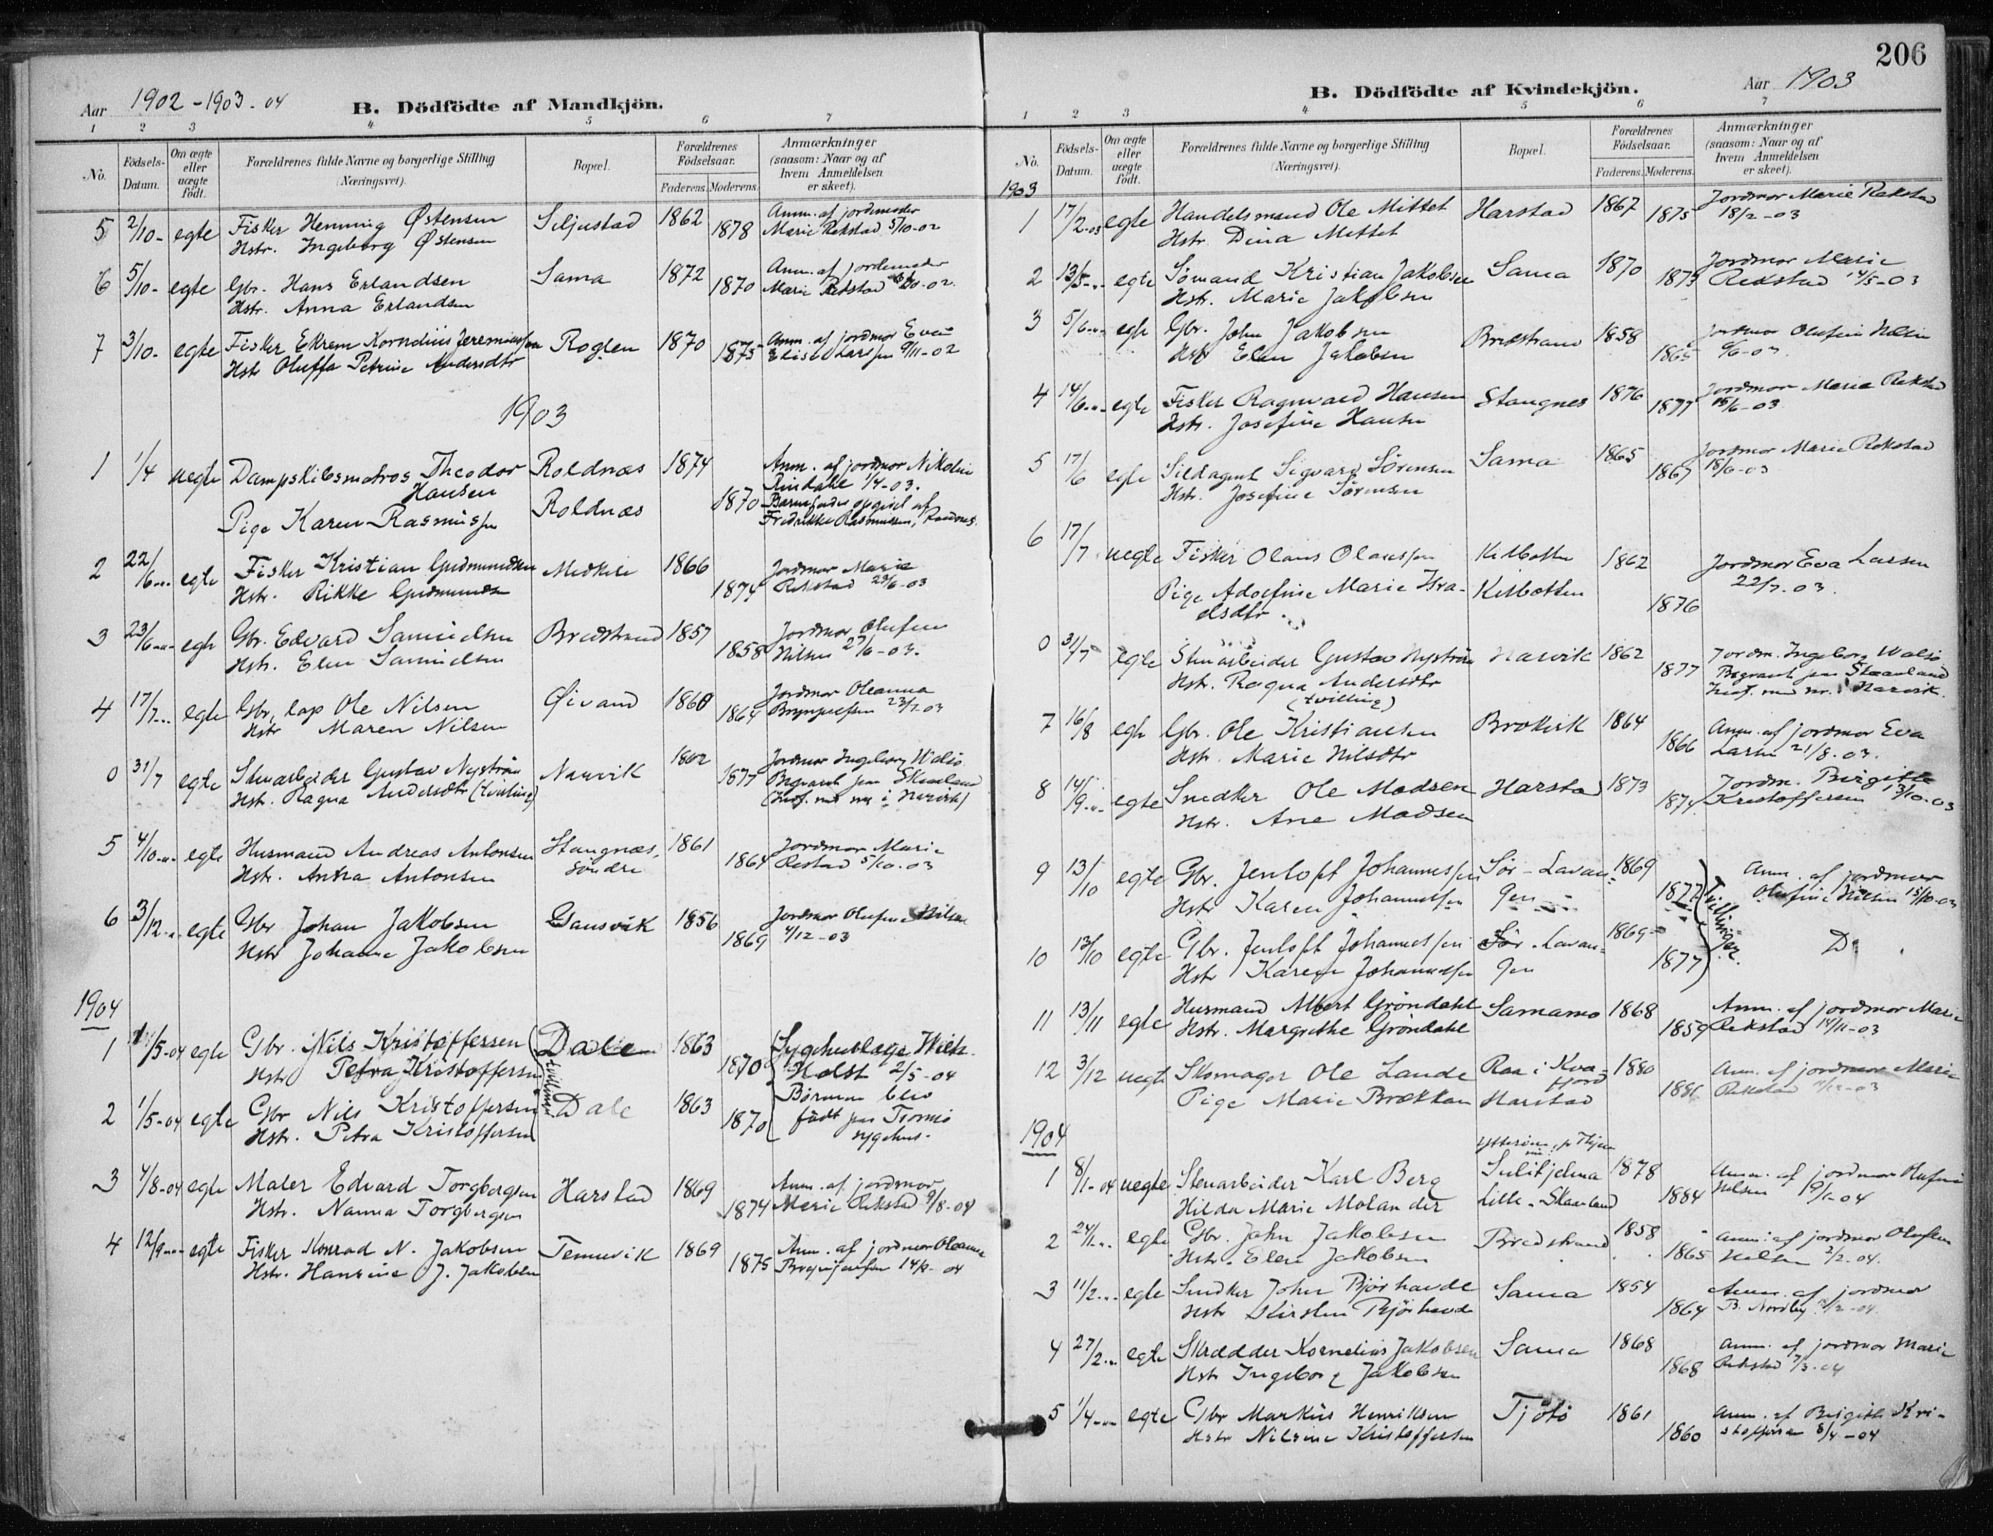 206
Aar 1902-1903-04
B. Dödfödte af Mandkjön.
1 2 3 4 5 6 7
No.
Födsels-Datum.
Om ægte eller uægte födt.
Forældrenes fulde Navne og borgerlige Stilling (Næringsvei).
Bopæl.
Forældrenes Födselsaar.
Faderens. Moderens.
Anmærkninger (saasom: Naar og af hvem Anmeldelsen er skeet).
5 2/10- egte Fisker Henning Østensen Siljustad 1862 Anm. af jordemoder
Hstr. Ingeborg Østensen 1878 Marie Rekstad 3/10-02
6 5/10- egte Gbr. Hans Erlandsen Sama 1872 Anm. af jordemoder
Hstr. Anna Erlandsen 1870 Marie Rekstad 02.
7 3/10- egte Fisker Ekrem Kornelius Jeremiassen Roglen 1870 Anm. af jordmor
Hstr Oluffa Petrine Andersdtr 1875 Larsen 9/11-02
1903
1 1/4 uegte Dampskibsmatros Theodor Roldnæs 1874 Anm. af jordmor Nikoline
Hansen Rindahl 1/4-03.
Pige Karen Rasmussen Roldnæs 1870 Barnefader opgivet af
Fredrikke Rasmussen,
2 22/6-"- egte Fisker Kristian Gudmundsen Medkile 1866 Jordmor Marie
Hstr. Rikke Gudmundsen 1874 Rekstad 23/6-03
3 23/6-"- egte Gbr. Edvard Samuelsen Bredstrand 1857 Jordmor Olufine
Hstr. Elen Samuelsen 1858 Nilsen 27/6-03.
4 17/7-"- egte Gbr, lap Ole Nilsen Øivand 1868 Jordmor Oleanna
Hstr Maren Nilsen 1864 Brynjulfsen 23/7.03
0 31/7 egte Stenarbeider Gustav Nyström Narvik 1862 Jordmor Ingeborg Walsö.
Hstr. Ragna Andersdtr (tvilling) 1877 Begravet paa Skaanland
(Indf. med nr i Narvik)
5 4/10-"- egte Husmand Andreas Antonsen Stangnæs, 1861 Jordmor Marie
Hstr. Anna Antonsen söndre 1864 Restad 5/10.03
6 3/12-"- egte Gbr Johan Jakobsen Gausvik 1856 Jordmor Olufine Nilsen
Hstr Johanne Jakobsen 1869 4/12-03
1904
1 1/5-04 egte Gbr. Nils Kristoffersen Dale 1863 Sygehuslæge Wilh.
Hstr Petra Kristoffersen tvillinger 1870 Holst 2/5-04
2 1/5-04 egte Gbr Nils Kristoffersen Dale 1863 Börnene blev
Hstr. Petra Kristoffersen 1870 födt paa Tromsö
sygehus.
3 7/8-04 egte Maler Edvard Torgbergsen Harstad 1869 Anm. af jordmor
Hstr. Nanna Torgbergsen 1874 Marie Rekstad 9/8-04
4 12/9-"- egte Fisker Konrad N. Jakobsen Tennevik 1869 Anm. af jordmor Oleanna
Hstr. Hansine J. Jakobsen 1875 Brynjulfsen 14/9-04
B. Dödfödte af Kvindekjön.
Aar 1903
1 2 3 4 5 6 7
No.
Födsels-Datum.
Om ægte eller uægte födt.
Forældrenes fulde Navne og borgerlige Stilling (Næringsvei).
Bopæl.
Forældrenes Födselsaar.
Faderens. Moderens.
Anmærkninger (saasom: Naar og af hvem Anmeldelsen er skeet).
1903
1 17/2-03 egte Handelsmand Ole Mittet Harstad 1867 Jordmor Marie Rekstad
Hstr Dina Mittet 1875 18/2-03
2 13/5-"- egte Sömand Kristian Jakobsen Sama 1870 Jordmor Marie
Hstr. Marie Jakobsen 1873 Rekstad 14/5-03
3 5/6-"- egte Gbr. John Jakobsen Bredstrand 1858 Jordmor Olufine Nilsen
Hstr Elen Jakobsen 1865 6/6-03.
4 14/6-"- egte Fisker Ragnvald Hansen Stangnes 1876 Jordmor Marie Rekstad
Hstr. Josefine Hansen 1877 15/6-03
5 17/6 egte Sildagent Sigvard Sörensen Sama 1865 Jordmor Marie Rekstad
Hstr. Josefine Sörensen 1867 18/6-03
6 17/7 uegte Fisker Olaus Olaussen Kilbotten 1862 Jordmor Eva Larsen
Pige Adolfine Marie Isra- Kilbotten 1876 22/7.03.
elsdtr.
0 31/7 egte Stenarbeider Gustav Nyström Narvik 1862 Jordm. Ingeborg Walsö
Hstr. Ragna Andersdtr 1877 Begravet paa Skaanland
(tvilling) Indf. med nr. i Narvik.
7 16/8 egte Gbr. Ole Kristiansen Brokvik 1864 Anm. af jordmor Eva
Hstr. Marie Nilsdtr 1866 Larsen 21/8.03.
8 14/9-"- egte Snedker Ole Madsen Harstad 1873 Jordm. Birgitte
Hstr. Ane Madsen 1874 Kristoffersen 13/10-03
9 13/10 egte Gbr. Jenloft Johannessen Sör-Lavan- 1869 Anm. af jordmor
Hstr Karen Johannessen gen 1877 Tvillinger. Olufine Nilsen 15/10-03
10 13/10 egte Gbr. Jenloft Johannessen Sör-Lavan- 1869 Do
Hstr Karen Johannessen gen 1877
11 13/11 egte Husmand Albert Gröndahl Samamo 1868 Anm. af jordmor Marie
Hstr. Margrethe Gröndahl 1859 Rekstad 14/11-03
12 3/12 uegte Skomager Ole Lande Raa i Kva- 1880 Anm. af jordmor Marie
fjord
Pige Marie Brækkan Harstad 1886 Rekstad 03
1904
1 8/1-04 uegte Stenarbeider Karl Berg Sulitjelma 1878 Anm. af jordmor Olufine
Hilda Marie Molander Lille-Skaanland 1884 Nilsen 04
2 24/1-"- egte Gbr. John Jakobsen Bredstrand 1858 Anm. af jordmor Olufine
Hstr. Elen Jakobsen 1865 Nilsen 2/2-04.
3 11/2-"- egte Snedker John Björhavde Sama 1854 Anm. af jordmor
Hstr Kirsten Björhavde 1864 B. Nordby 04.
4 27/2-"- egte Skrædder Kornelius Jakobsen Sama 1868 Anm. af jordmor Marie
Hstr Ingeborg Jakobsen 1868 Rekstad 04
5 1/4-"- egte Gbr Markus Henriksen Tjötö 1861 Anm. af Birgitte Kri-
Hstr Nilsine Kristoffersen 1860 stoffersen 8/4-04